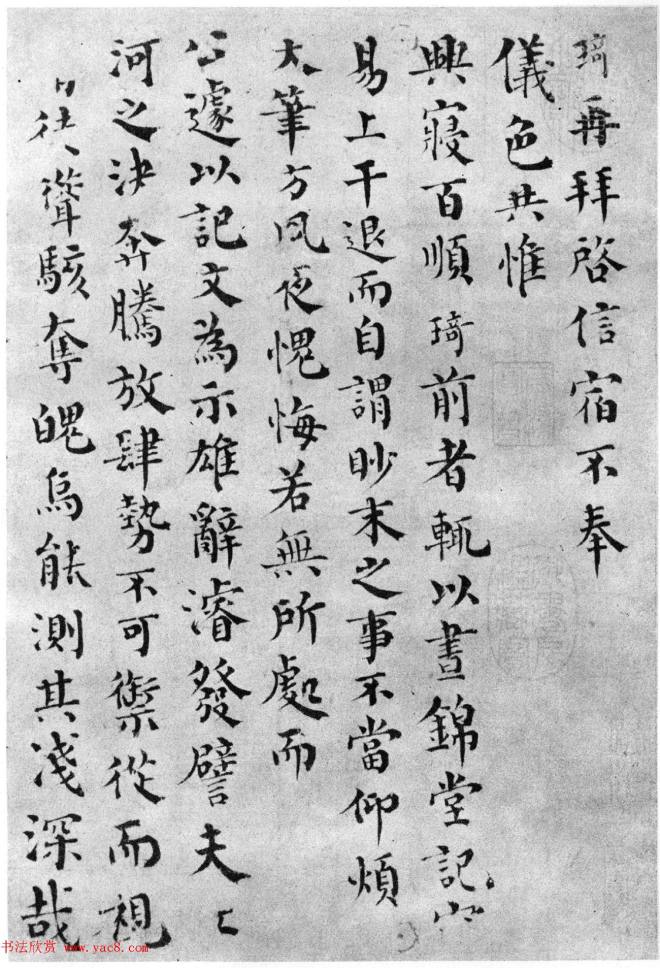 琦再拜啓信宿不奉
儀色共惟
興寢百順琦前者輒以晝錦堂記
易上干退而自謂眇末之事不當仰煩
大筆方夙夜愧悔若無所處而
公遽以記文為示雄辭濬發譬夫
河之決奔騰放肆勢不可禦從而視
聳駭奪魄烏能測其淺深哉
书法欣赏 www.yac8.com